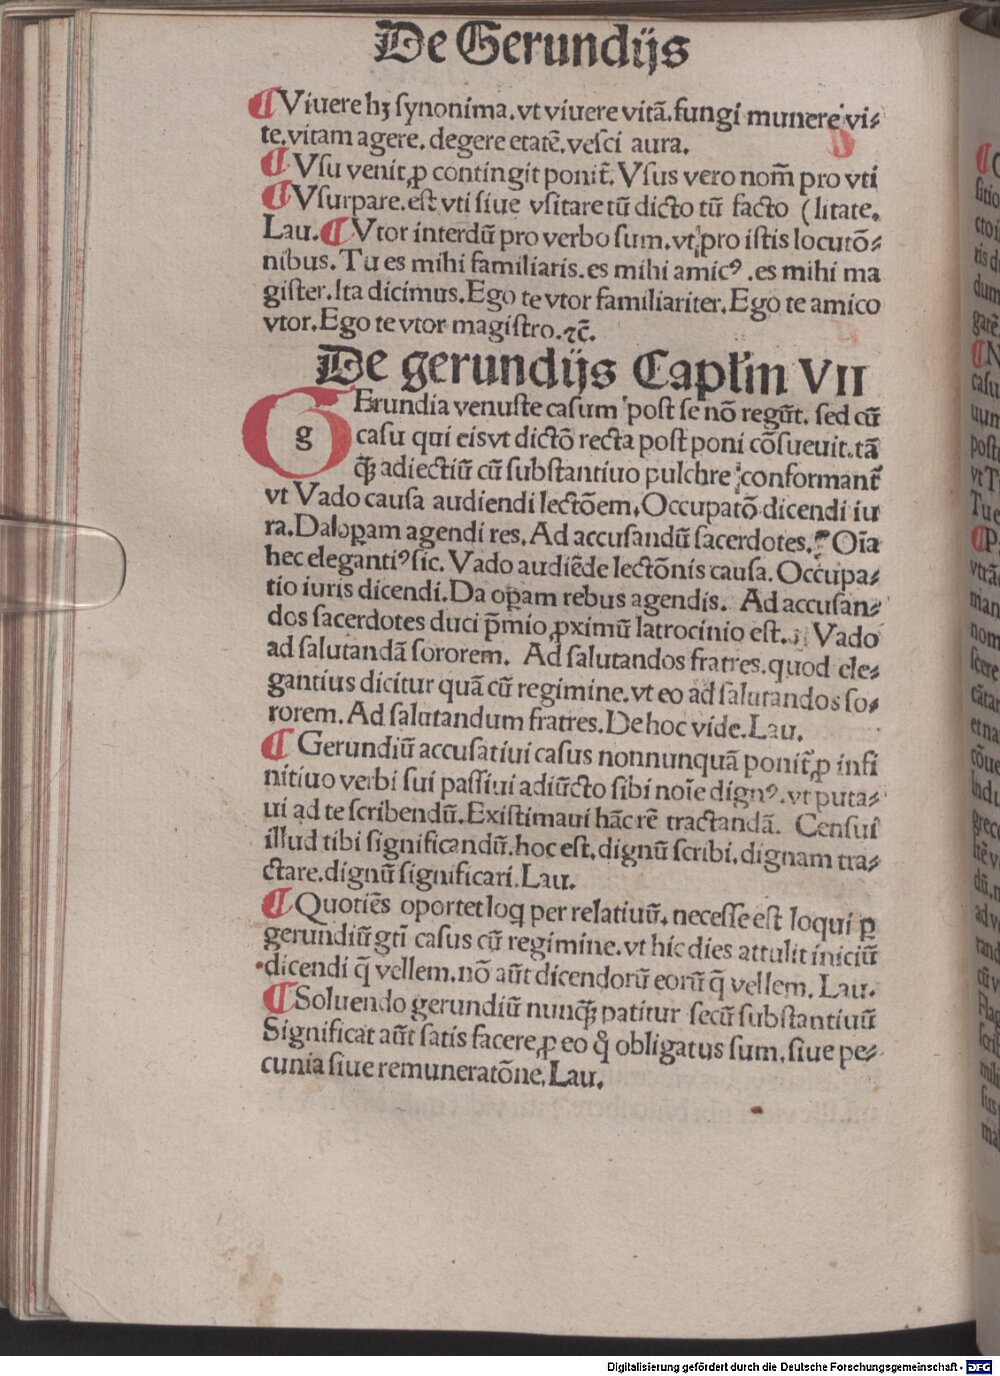 De Gerundijs
¶ Viuere hꝫ synonima. vt viuere vitã. fungi munere vi⸗
te. vitam agere. degere etatẽ. vesci aura.
¶ Vsu venit, ꝓ contingit ponit̃. Vsus vero nom̃ pro vti
¶ Vsurpare. est vti siue vsitare tũ dicto tũ facto (litate.
Lau. ¶ Vtor interdũ pro verbo sum. vt pro istis locutõ⸗
nibus. Tu es mihi familiaris. es mihi amicꝰ. es mihi ma
gister. Ita dicimus. Ego te vtor familiariter. Ego te amico
vtor. Ego te vtor magistro. ⁊c̃.
De gerundijs Caplm VII
gErundia venuste casum post se nõ regũt. sed cũ
casu qui eis vt dictõ recta post poni cõsueuit. tã
q̃ꝫ adiectiũ cũ substantiuo pulchre conformant̃
vt Vado causa audiendi lectõem. Occupatõ dicendi iu
ra. Da loꝑam agendi res. Ad accusandũ sacerdotes. Oĩa
hec elegantiꝰ sic. Vado audiẽde lectõnis causa. Occupa⸗
tio iuris dicendi. Da oꝑam rebus agendis. Ad accusan⸗
dos sacerdotes duci p̃mio ꝓximũ latrocinio est. Vado
ad salutandã sororem. Ad salutandos fratres. quod ele⸗
gantius dicitur quã cũ regimine. vt eo ad salutandos so⸗
rorem. Ad salutandum fratres. De hoc vide. Lau.
¶ Gerundiũ accusatiui casus nonnunquã ponit̃ ꝓ infi
nitiuo verbi sui passiui adiũcto sibi noĩe dignꝰ. vt puta⸗
ui ad te scribendũ. Existimaui hãc rẽ tractandã. Censui
illud tibi significandũ. hoc est. dignũ scribi. dignam tra⸗
ctare. dignũ significari. Lau.
¶ Quotiẽs oportet loq per relatiuũ. necesse est loqui ꝑ
gerundiũ gti casus cũ regimine. vt hic dies attulit iniciũ
dicendi q̃ vellem. nõ aũt dicendorũ eorũ q̃ vellem. Lau.
¶ Soluendo gerundiũ nunq̃ꝫ patitur secũ substantiuũ
Significat aũt satis facere, ꝓ eo q̃ obligatus sum. siue pe⸗
cunia siue remuneratõne. Lau.
Digitalisierung gefördert durch die Deutsche Forschungsgemeinschaft - DFG